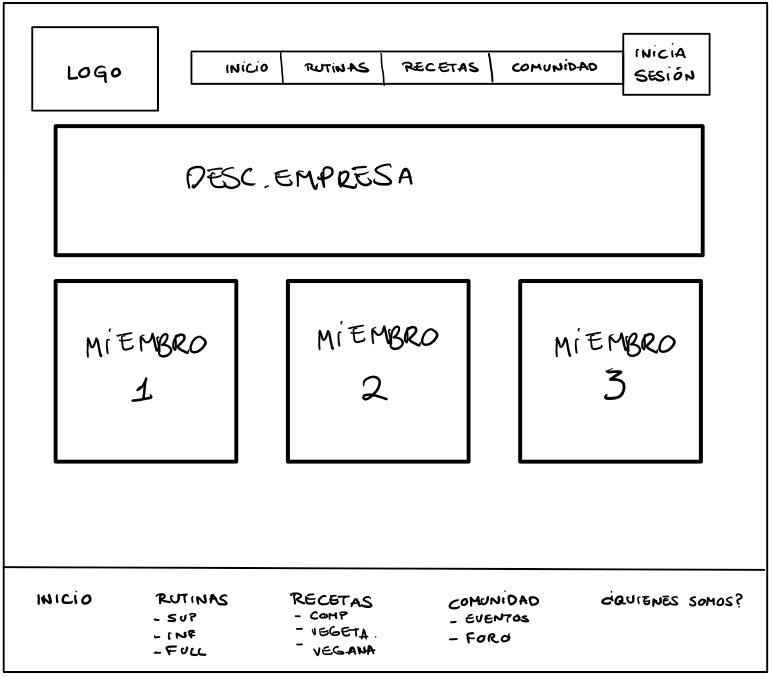 LOGO
INICIO RUTINAS RECETAS COMUNIDAD
INICIA
SESIÓN
DESC. EMPRESA
MIEMBRO
1
MIEMBRO
2
MIEMBRO
3
INICIO
RUTINAS
- SUP
- INF
- FULL
RECETAS
- COMP
- VEGETA.
- VEGANA
COMUNIDAD
- EVENTOS
- FORO
¿QUIENES SOMOS?